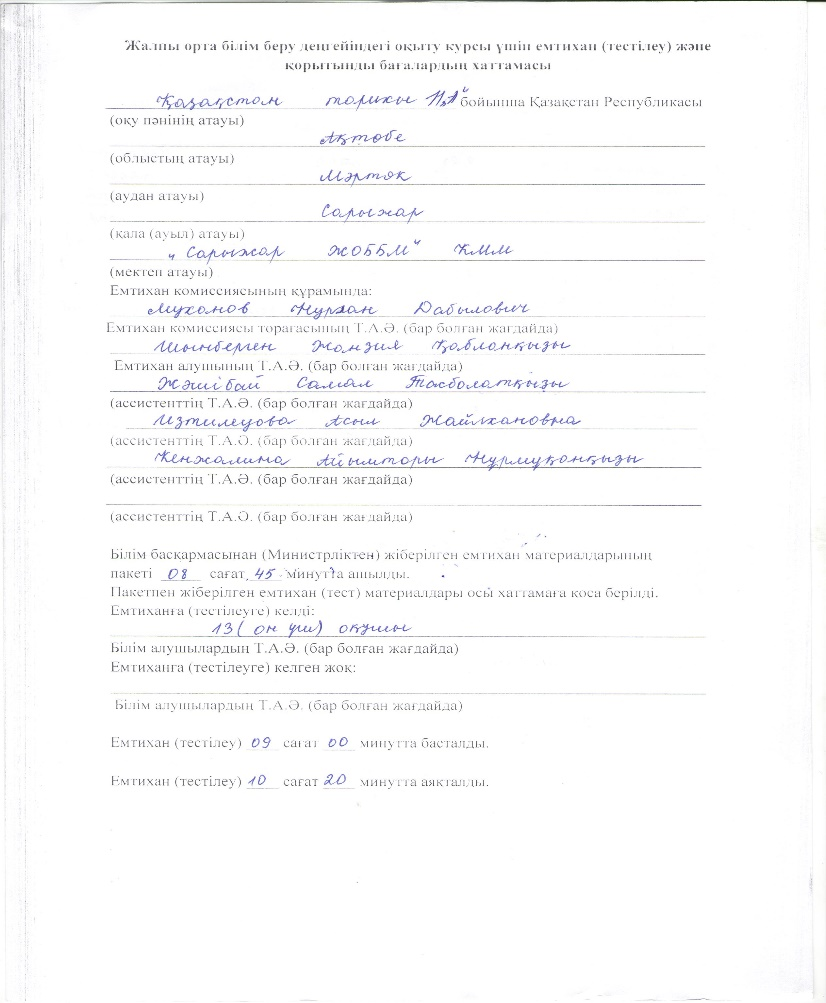 Жалпы орта білім беру деңгейіндегі оқыту курсы үшін емтихан (тестілеу) және
қорытынды бағалардың хаттамасы
Қазақстан тарихы 11 "А" бойынша Қазақстан Республикасы
(оқу пәнінің атауы)
Ақтөбе
(облыстың атауы)
Мәртөк
(аудан атауы)
Сарыжар
(қала (ауыл) атауы)
„Сарыжар ЖОББМ" КММ
(мектеп атауы)
Емтихан комиссиясының құрамында:
Муханов Нұржан Дабылович
Емтихан комиссиясы торағасының Т.А.Ә. (бар болған жағдайда)
Шынберген Жанзия Қабланқызы
Емтихан алушының Т.А.Ә. (бар болған жағдайда)
Жәшібай Самал Тасболатқызы
(ассистенттің Т.А.Ә. (бар болған жағдайда)
Изтилеуова Асыл Жайлхановна
(ассистенттің Т.А.Ә. (бар болған жағдайда)
Кенжалина Айымторы Нұрмұқанқызы
(ассистенттің Т.А.Ә. (бар болған жағдайда)
(ассистенттің Т.А.Ә. (бар болған жағдайда)
Білім басқармасынан (Министрліктен) жіберілген емтихан материалдарының
пакеті 08 сағат 45 минутта ашылды.
Пакетпен жіберілген емтихан (тест) материалдары осы хаттамаға қоса берілді.
Емтиханға (тестілеуге) келді:
13 (он үш) оқушы
Білім алушылардың Т.А.Ә. (бар болған жағдайда)
Емтиханға (тестілеуге) келген жоқ:
Білім алушылардың Т.А.Ә. (бар болған жағдайда)
Емтихан (тестілеу) 09 сағат 00 минутта басталды.
Емтихан (тестілеу) 10 сағат 20 минутта аяқталды.